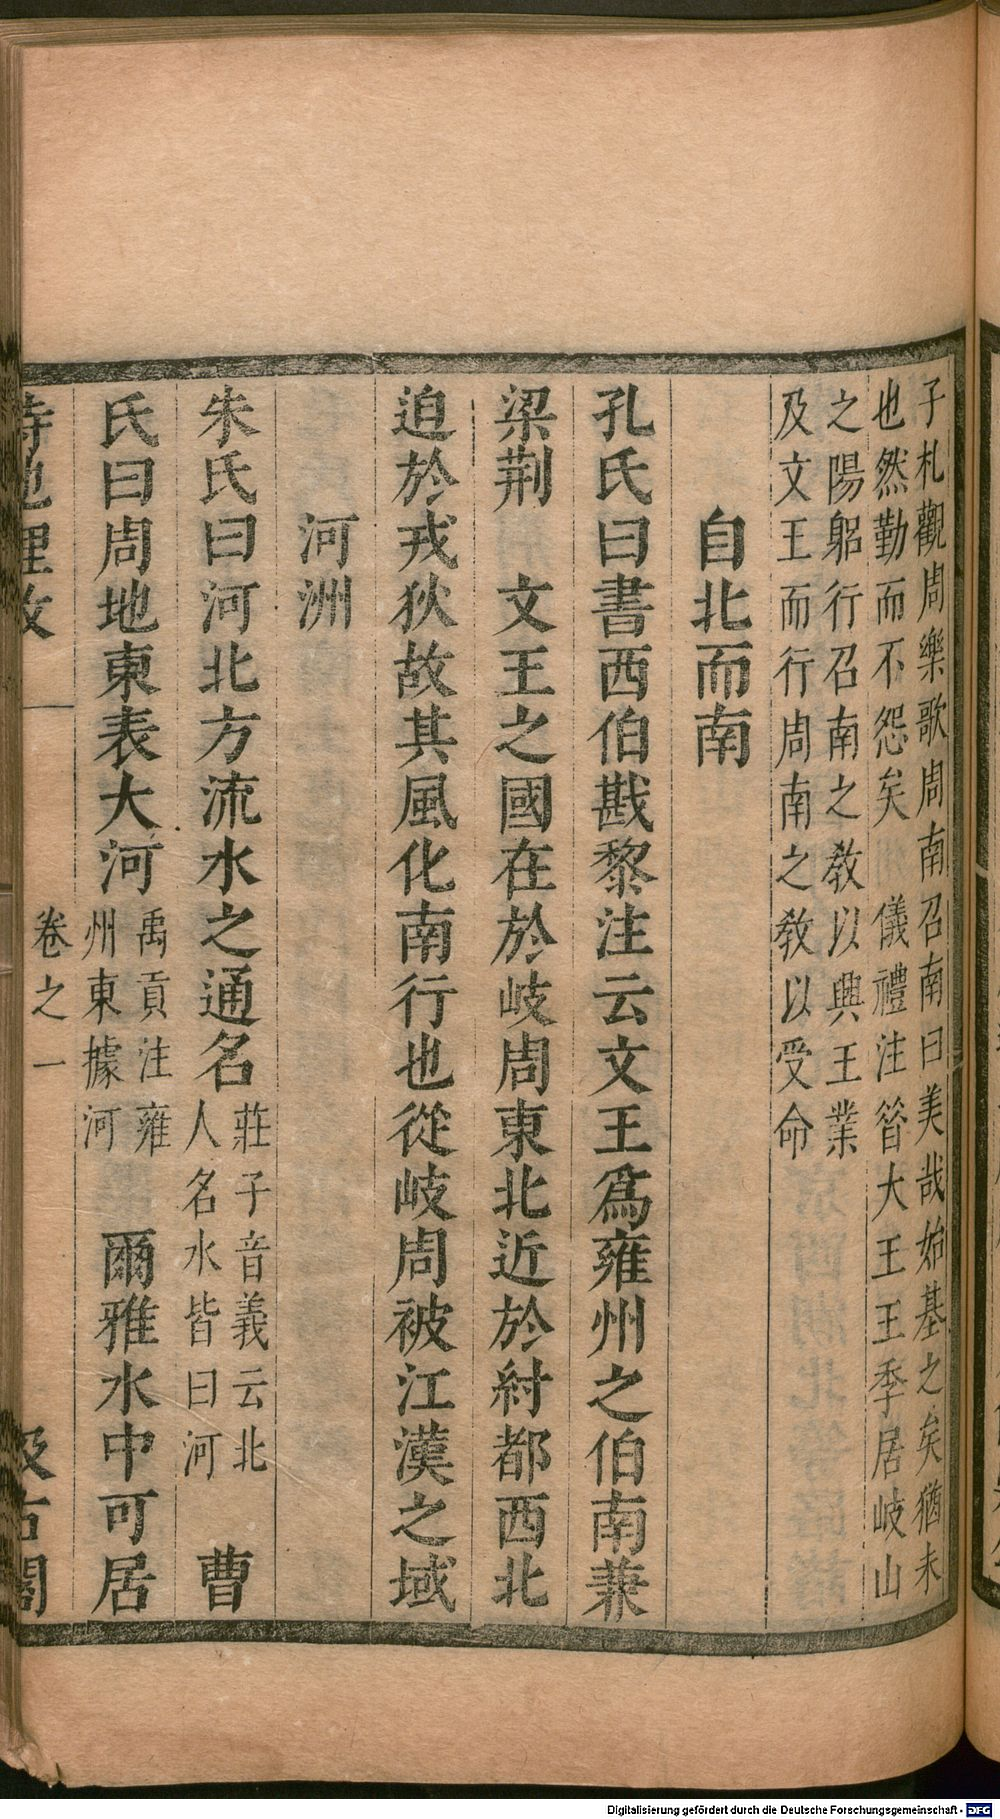 子札觀周樂歌周南召南曰美哉始基之矣猶未
也然勤而不怨矣 儀禮注昝大王王季居岐山
之陽躬行召南之教以興王業
及文王而行周南之教以受命
自北而南
孔氏曰書西伯戡黎注云文王爲雍州之伯南兼
梁荆 文王之國在於岐周東北近於紂都西北
迫於戎狄故其風化南行也從岐周被江漢之域
河洲
朱氏曰河北方流水之通名
莊子音義云北
人名水皆曰河
曹
氏曰周地東表大河
禹貢注雍
州東據河
爾雅水中可居
詩地理攷
卷之一
汲古閣
Digitalisierung gefördert durch die Deutsche Forschungsgemeinschaft - DFG